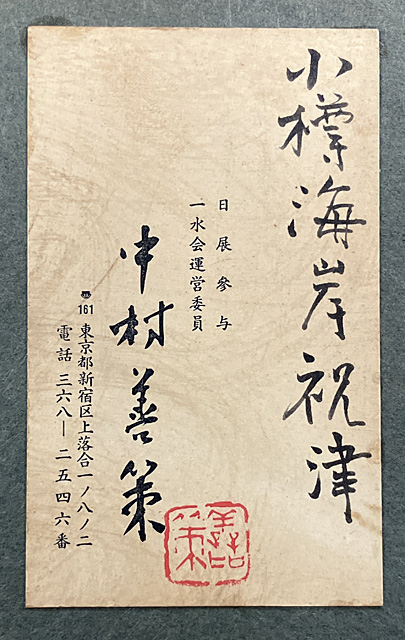 小樽海岸祝津
日展参与
一水会運営委員
中村善策
〠161 東京都新宿区上落合一ノ八ノ二
電話 三六八―二五四六番
善策